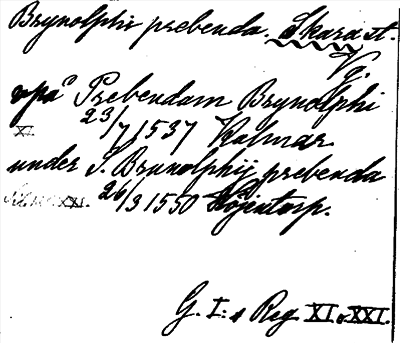 Brynolphi prebenda. Skara st.
Vg.
upå Prebendam Brynolphi
XI. 23/7 1537 Kalmar
under S. Brunolphij prebenda
XXI. 26/3 1550 Höjentorp.
G. I:s Reg XI o XXI.